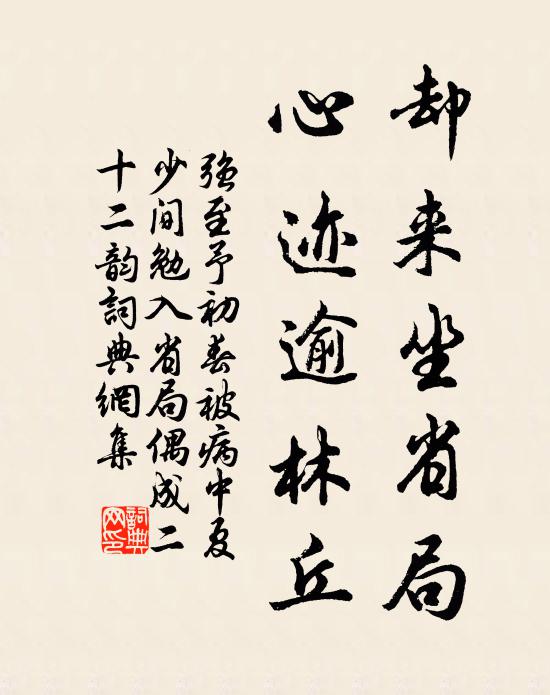 却来坐省局
心迹逾林丘
强至予初春被病中夏
少间勉入省局偶成二
十二韵詞典網集
詞典
网印